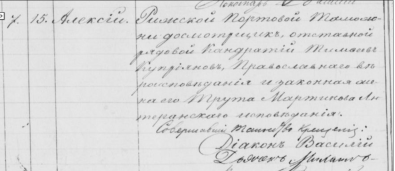 7. 15. Алексій. Рижской Портовой Таможни
досмотрщикъ, отставной
рядовой Кандратій
Купріяновъ, Православнаго вѣроисповѣданія
и законная жена
его Трута Мартинова Лютеранскаго
исповѣданія.
Совершившій Таинство Крещенія:
Діаконъ Василій